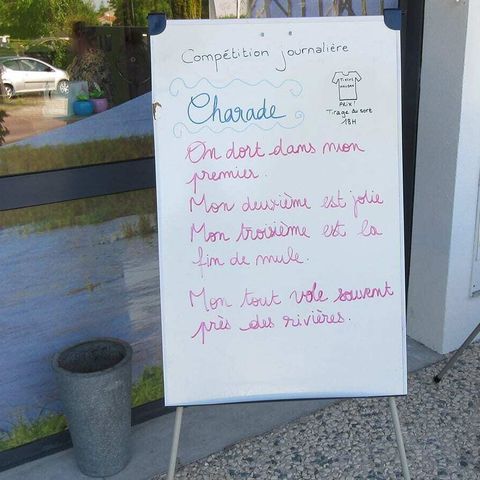 Compétition journalière
Charade
PRIX
Tirage au sort
18H
On dort dans mon
premier.
Mon deuxième est jolie
Mon troisième est la
fin de mule.
Mon tout vole souvent
près des rivières.